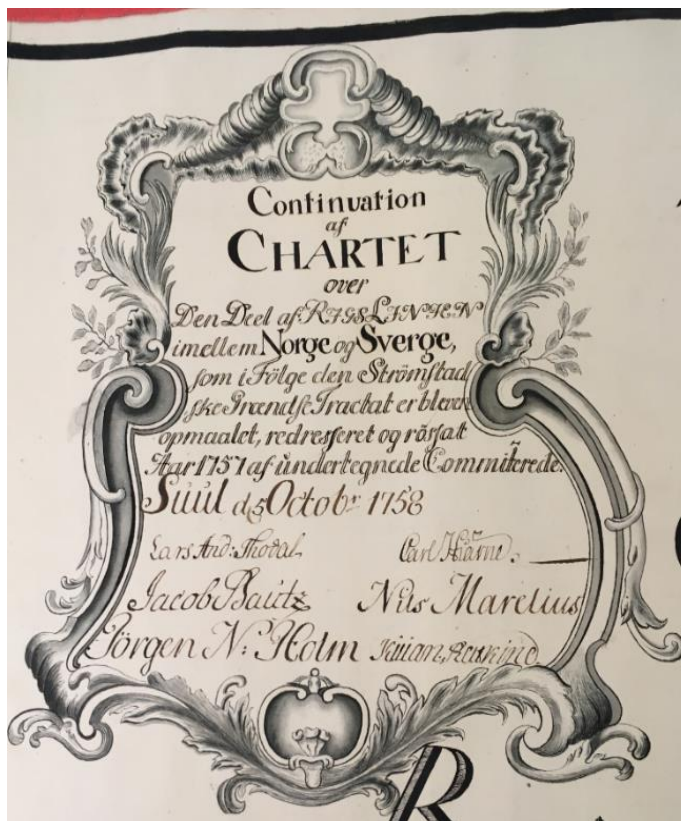 Continuation
af
CHARTET
over
Den Deel af RIGSLINIEN
imellem Norge og Sverge,
som i Fölge den Strömstad
ske Grændse Tractat er bleven
opmaalet, redresseret og rössat
Aar 1757 af undertegnede Committerede.
Suul d. 5 Octobr 1758
Lars And: Thodal
Carl Hiärne.
Jacob Bautz Nils Marelius
Jörgen N: Holm
R